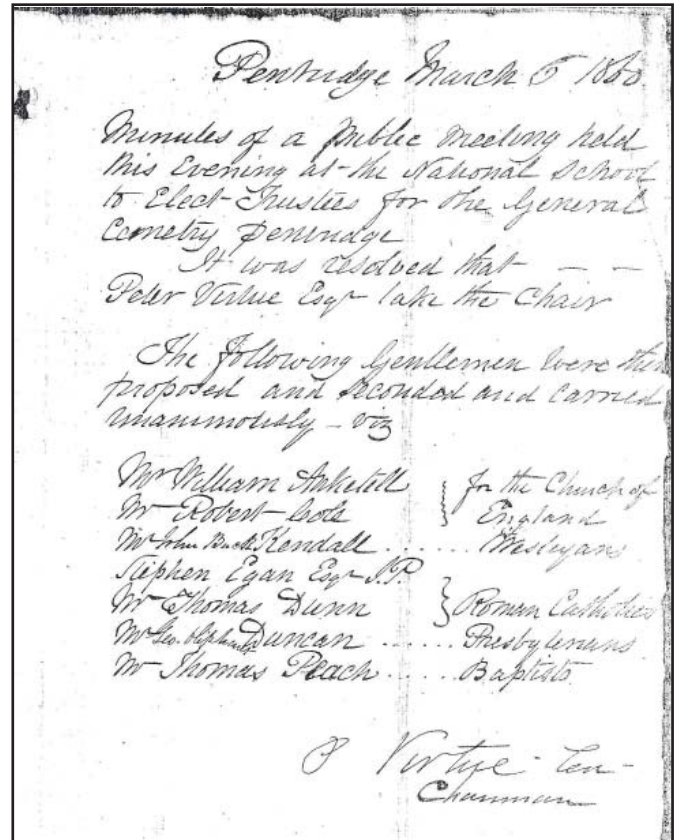 Pentridge March 5 1860
Minutes of a Public Meeting held
this Evening at the National School
to Elect Trustees for the General
Cemetry Pentridge
It was resolved that - -
Peter Virtue Esqr take the Chair
The following Gentlemen were then
proposed and seconded and carried
unanimously - viz
Mr William Anketell } for the Church of
Mr Robert Cole } England
Mr John Buck Kendall ...... Wesleyans
Stephen Egan Esqr J.P.
Mr Thomas Dunn } Roman Catholics
Mr Geo. Duncan ...... Presbyterians
Mr Thomas Peach ..... Baptists
P Virtue
Chairman